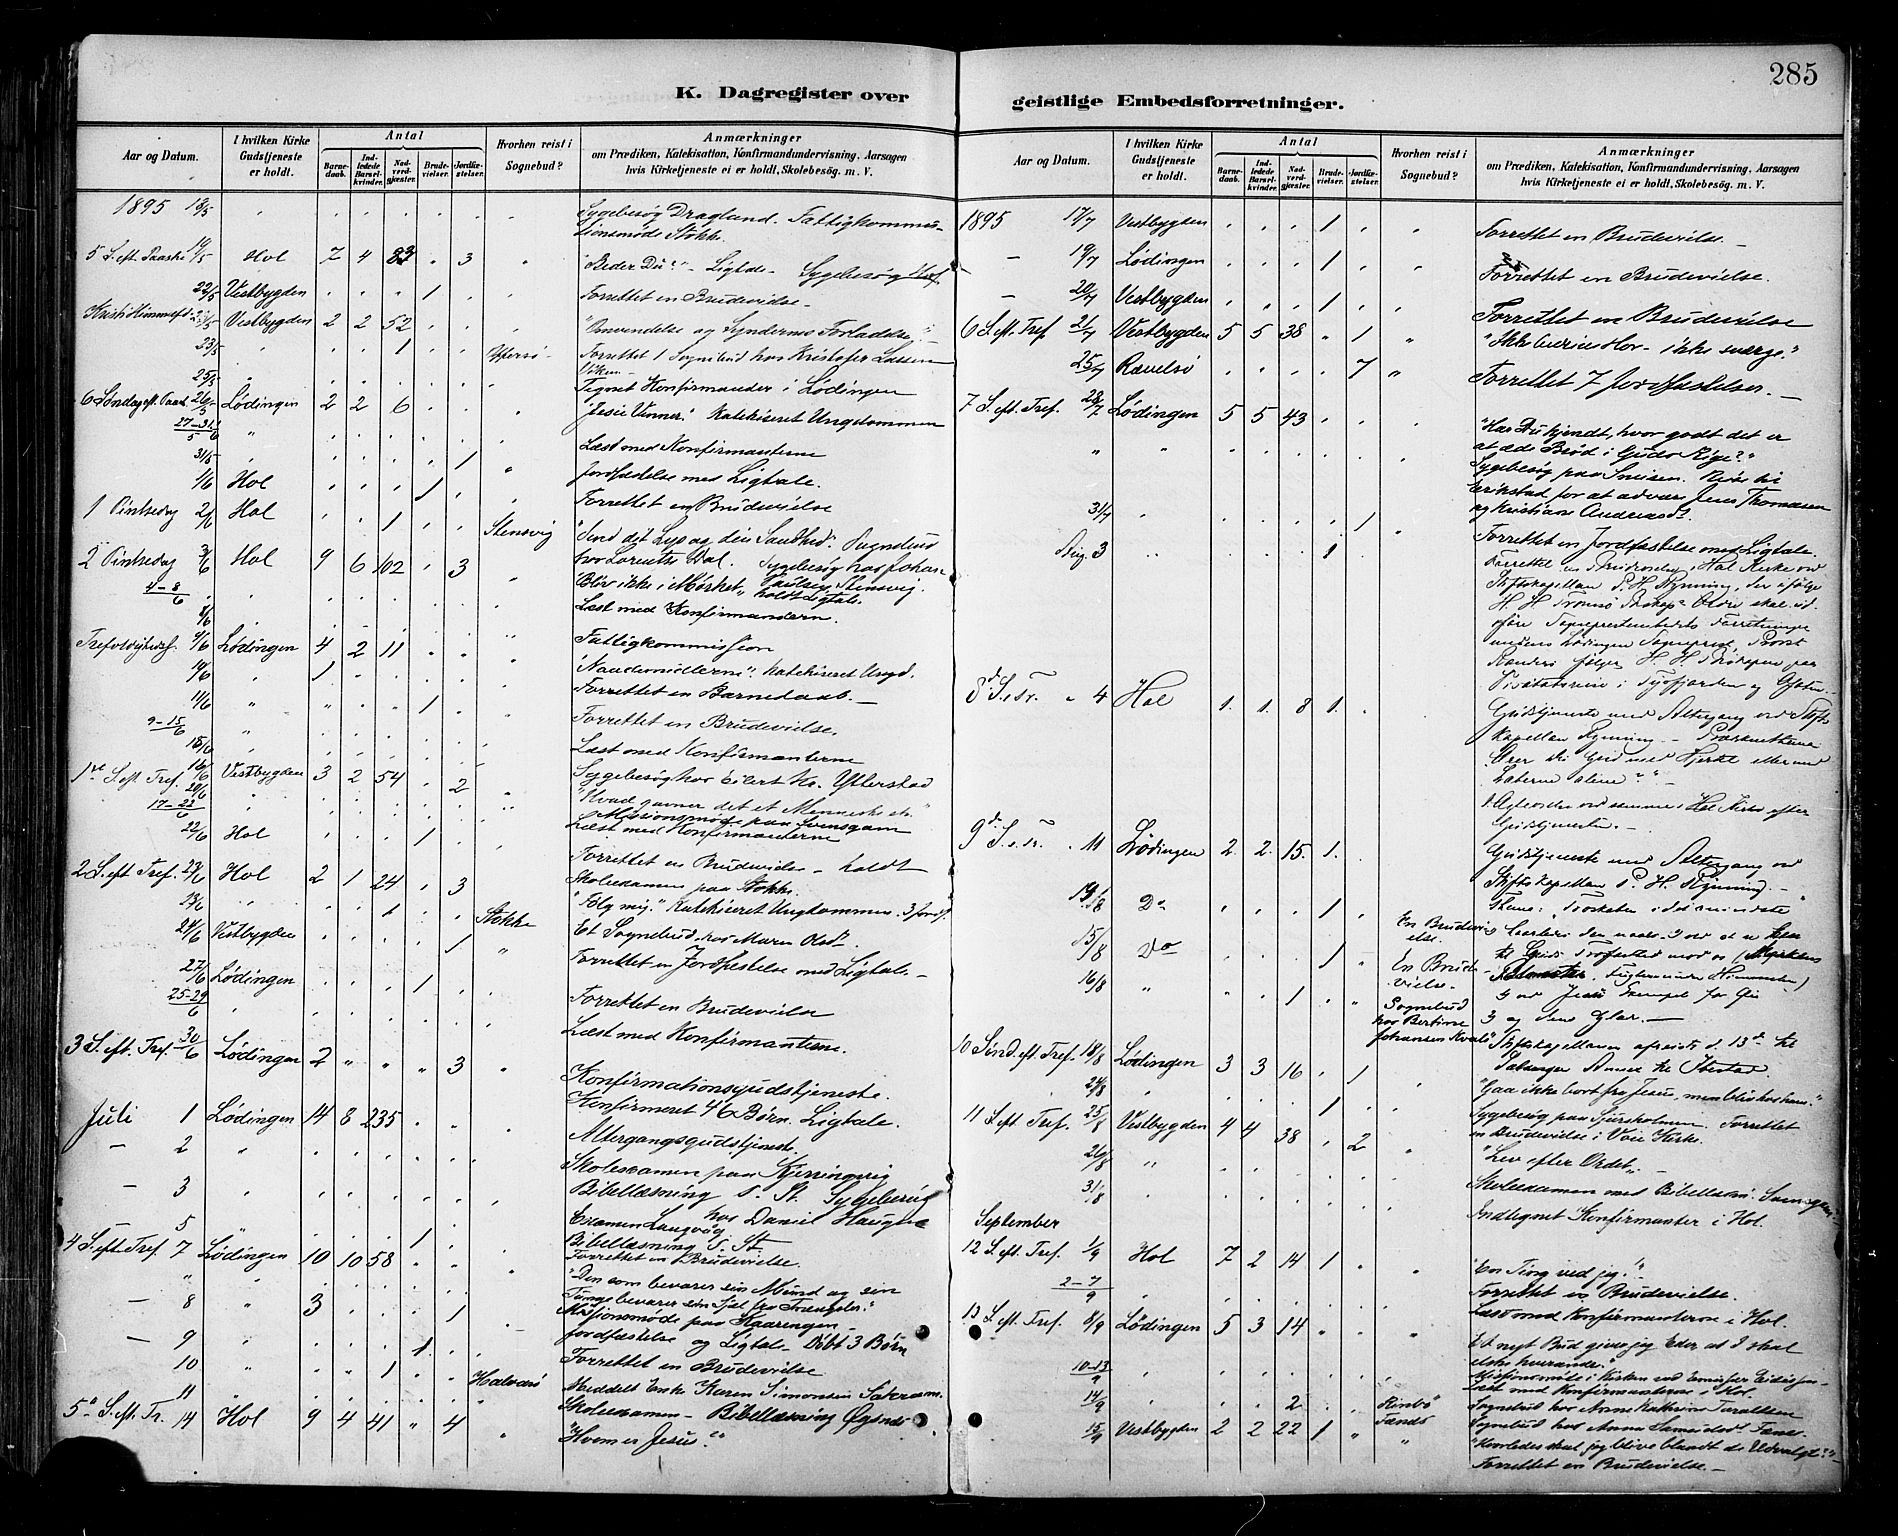 285
K. Dagregister over
geistlige Embedsforretninger.
Aar og Datum.
I hvilken Kirke Gudstjeneste er holdt.
Antal
Barnedaab.
Indledede Barselkvinder.
Nadvordgjæster.
Brudevielser.
Jordfæstelser.
Hvorhen reist i Sognebud?
Anmærkninger
om Prædiken, Katekisation, Konfirmandundervisning, Aarsagen
hvis Kirketjeneste ei er holdt, Skolebesøg. m. V.
1895 18/5 Sygebesøg Dragland. Fattigkommis-
sionsmøde Stokke
5 S. eft. Paaske 19/5 Hol 7 4 83 3 "Beder Du?" - Ligtale - Sygebesøg
22/5 Vestbygden 1 Forrettet en Brudevielse -
Kristi Himmelf. Vestbygden 2 2 52 "Omvendelse og Syndernes Forladelse"
23/5 1 Forrettet 1 Sognebud hos Kristofer Larsen
25/5 Tegnet Konfirmander i Lødingen
6 Søndag eft. Paask. 26/5 Lødingen 2 2 6 "Jesu Venner." Katekiseret Ungdommen
27-31/5 Læst med Konfirmanterne
31/5 1 Jordfæstelse med Ligtale.
1/6 Hol 1 Forrettet en Brudevielse
1 Pintsedag 2/6 Hol 1 Stensvig "Send dit Lys og din Sandhed." Sognebud
hos Lorents Dal. Sygebesøg hos Johan
2 Pintsedag 3/6 Hol 9 6 102 3 Bliv ikke i Mørket, holdt Ligtale.
4-8/6 Læst med Konfirmanderne.
8/6 Fattigkommission
Trefoldighedsf. 9/6 Lødingen 4 2 11 "Naademidlerne". Katekiseret Ungd.
10/6 1 Forrettet en Barnedaab. -
11/6 1 Forrettet en Brudevielse.
9-15/6 Læst med Konfirmanterne
15/6 Sygebesøg hos Eilert Kr. Ytterstad
1ste S. eft. Tref. 16/6 Vestbygden 3 2 54 2 "Hvad gavner det et Menneske etc."
20/6 Missionsmøde paa
17-22/6 Læst med Konfirmanterne
22/6 Hol 1 Forrettet en Brudevielse - holdt
Skoleexamen paa Stokke.
2 S. eft Tref. 23/6 Hol 2 1 24 3 "Følg mig." Katekiseret Ungdommen. 3 Jordf.
23/6 1 Stokke Et Sognebud hos Maren Olsd.
24/6 Vestbygden 1 Forrettet en Jordfæstelse med Ligtale -
27/6 Lødingen 1 Forrettet en Brudevielse
25-29/6 Læst med Konfirmanterne.
3 S. eft. Tref. 30/6 Lødingen 2 3 Konfirmationsgudstjeneste.
Konfirmeret 46 Børn. Ligtale.
Juli 1 Lødingen 14 8 235 Altergangsgudstjeneste.
- 2 Skoleexamen paa Kjerringvig
Bibellæsning s. St. Sygebesøg
hos Daniel Haugen
- 3 Examen Langvög
Bibellæsning s. St.
5 1 Forrettet en Brudevielse.
4 S. eft. Tref. 7 Lødingen 10 10 58 "Den som bevarer sin Mund og sin
Tunge bevarer sin Sjæl fra Trængsler."
Missionsmøde paa Kaarengen -
- 8 3 1 Jordfæstelse og Ligtale - Døbt 3 Børn
- 9 1 Forrettet en Brudevielse
10 1 Halvdsø Meddelt Enke Karen Simonsen Sakram.
11 Skoleexamen - Bibellæsning Øgsnes
5te S. eft. Tr. 14 Hol 9 4 41 4 "Hvem er Jesus?"
Aar og Datum.
I hvilken Kirke Gudstjeneste er holdt.
Antal
Barnedaab.
Indledede Barselkvinder.
Nadvordgjæster.
Brudevielser.
Jordfæstelser.
Hvorhen reist i Sognebud?
Anmærkninger
om Prædiken, Katekisation, Konfirmandundervisning, Aarsagen
hvis Kirketjeneste ei er holdt, Skolebesøg. m. V.
1895 17/7 Vestbygden 1 Forrettet en Brudevielse -
- 19/7 Lødingen 1 Forrettet en Brudevielse.
- 20/7 Vestbygden 1 Forrettet en Brudevielse
6 S. eft. Tref. 21/7 Vestbygden 5 5 38 1 "Ikke bedrive Hor - ikke sværge."
25/7 Rævelsø 7 Forrettet 7 Jordfæstelser. -
7 S. eft. Tref. 28/7 Lødingen 5 5 43 "Har Du kjendt, hvor godt det er
at æde Brød i Guds Rige?"
Sygebesøg paa Sneisen. Reiste til
Erikstad for at advare Jens Thomasen
og Kristiane Andreasd.
31/7 1 Forrettet en Jordfæstelse med Ligtale.
Aug. 3 1 Forrettet en Brudevielse i Hol Kirke ved
Stiftskapellan P. H. Rynning, der ifølge
H. H. Tromsø Biskops Ordre skal ud-
føre Sogneprestembedets Forretninger
medens Lødingen Sogneprest, Provst
følger H. H. Biskopen paa
Visitatsreise i Tysfjorden og
8de S. e. Tr. 4 Hol 1. 1. 8 1. Gudstjeneste med Altergang ved Stifts
kapellan Rynning.
Gud med Hjertet eller med
Læberne alene
i Hol Kirke efter
Gudstjenesten. -
9de S. e. Tr. 11 Lødingen 2. 2. 15. 1. Gudstjeneste med Altergang ved
Stiftskapellan P. H. Rynning. -
Thema: Troskaben i det mindste
14/8 Do 1 En Brudevielse.
15/8 Do 1 En Brudevielse.
16/8 1 Sognebud hos Bertine Johansen
Stiftskapellanen afreiste d. 13de til
10 Sønd. eft. Tref. 18/8 Lødingen 3 3 16 1 "Gaa ikke bort fra Jesus, men bliv hos ham."
24/8 1 Sygebesøg paa Sjurskolmen. Forrettet
en Brudevielse i Voie Kirke.
11 S. eft. Tref. 25/8 Vestbygden 4 4 38 2 "Lev efter Ordet". -
26/8 Skoleexamen med Bibellæsn.
31/8 Indtegnet Konfirmanter i Hol.
September
12 S. eft. Tref. 1/9 Hol 7 2 14 1 "En Ting ved jeg!" -
Forrettet en Brudevielse.
2-7/9 Læst med Konfirmanterne i Hol.
13 S. eft. Tref. 8/9 Lødingen 5 3 14 "Et nyt Bud giver jeg Eder at I skal
elske hverandre."
Missionsmøde i Kirken ved
10-13/9 Læst med Konfirmanterne i Hol.
14/9 2 Rinbø Sognebud hos Anne Kathrine
Sognebud hos Anna
15/9 Vestbygden 2 2 22 1 "Hvorledes skal jeg blive blandt de Udvalgte?" -
Forrettet en Brudevielse. -